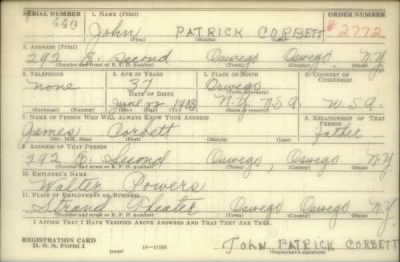 SERIAL NUMBER 1. NAME (Print) ORDER NUMBER
440 John PATRICK CORBETT #2772
(First) (Middle) (Last)
2. ADDRESS (Print)
292 E. Second Oswego Oswego, N.Y.
(Number and street or R. F. D. number) (Town) (County) (State)
3. TELEPHONE 4. AGE IN YEARS 5. PLACE OF BIRTH 6. COUNTRY OF CITIZENSHIP
none 37 Oswego
DATE OF BIRTH
June 22 1903 N.Y. U.S.A. U.S.A.
(Exchange) (Number) (Mo.) (Day) (Yr.) (State or country)
7. NAME OF PERSON WHO WILL ALWAYS KNOW YOUR ADDRESS 8. RELATIONSHIP OF THAT PERSON
James Corbett Father
(Mr., Mrs., Miss) (First) (Middle) (Last)
9. ADDRESS OF THAT PERSON
292 E. Second Oswego, Oswego N.Y.
(Number and street or R. F. D. number) (Town) (County) (State)
10. EMPLOYER'S NAME
Walter Powers
11. PLACE OF EMPLOYMENT OR BUSINESS
Strand Theater Oswego Oswego N.Y.
(Number and street or R. F. D. number) (Town) (County) (State)
I AFFIRM THAT I HAVE VERIFIED ABOVE ANSWERS AND THAT THEY ARE TRUE.
REGISTRATION CARD
D. S. S. Form 1 (over) 16—17105 JOHN PATRICK CORBETT